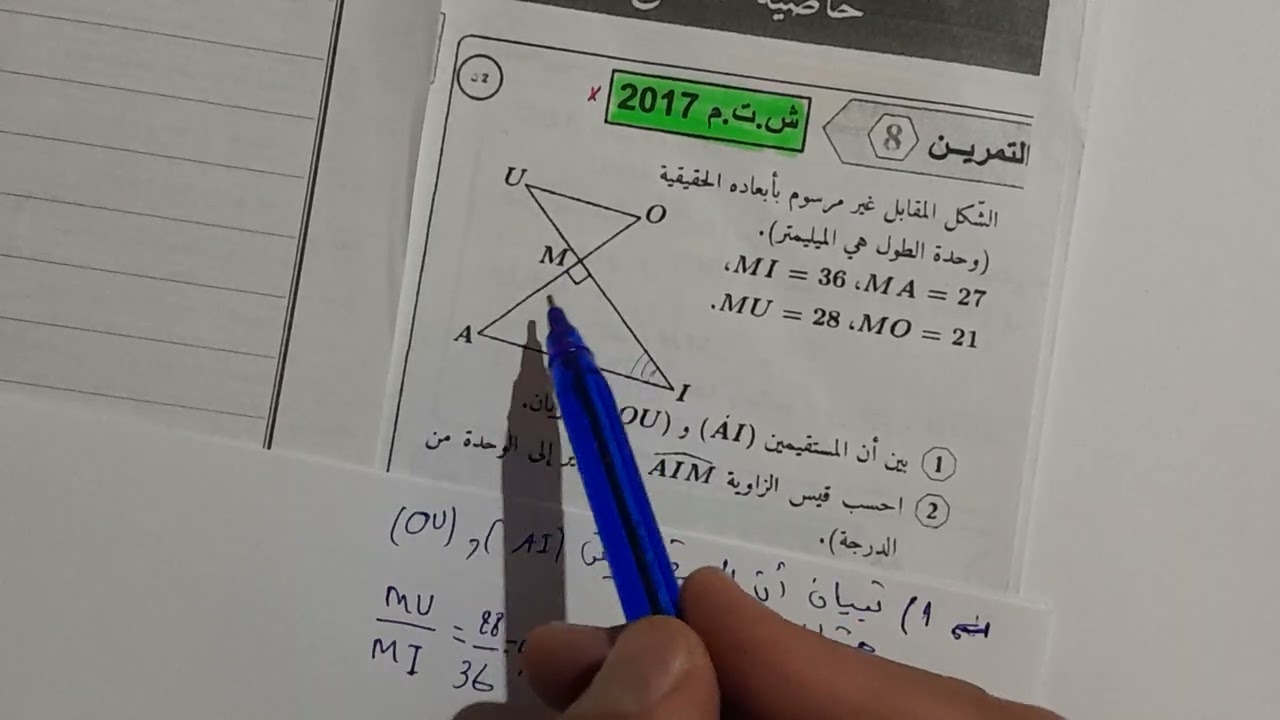 ش.ت.م 2017
التمريـن 8
الشّكل المقابل غير مرسوم بأبعاده الحقيقية
(وحدة الطول هي الميليمتر).
MA = 27، MI = 36،
MO = 21، MU = 28.
U
O
M
A
I
1 بين أن المستقيمين (AI) و (OU)
2 احسب قيس الزاوية AIM إلى الوحدة من
الدرجة).
1) تبيان أن (AI) و (OU)
MU/MI = 28/36